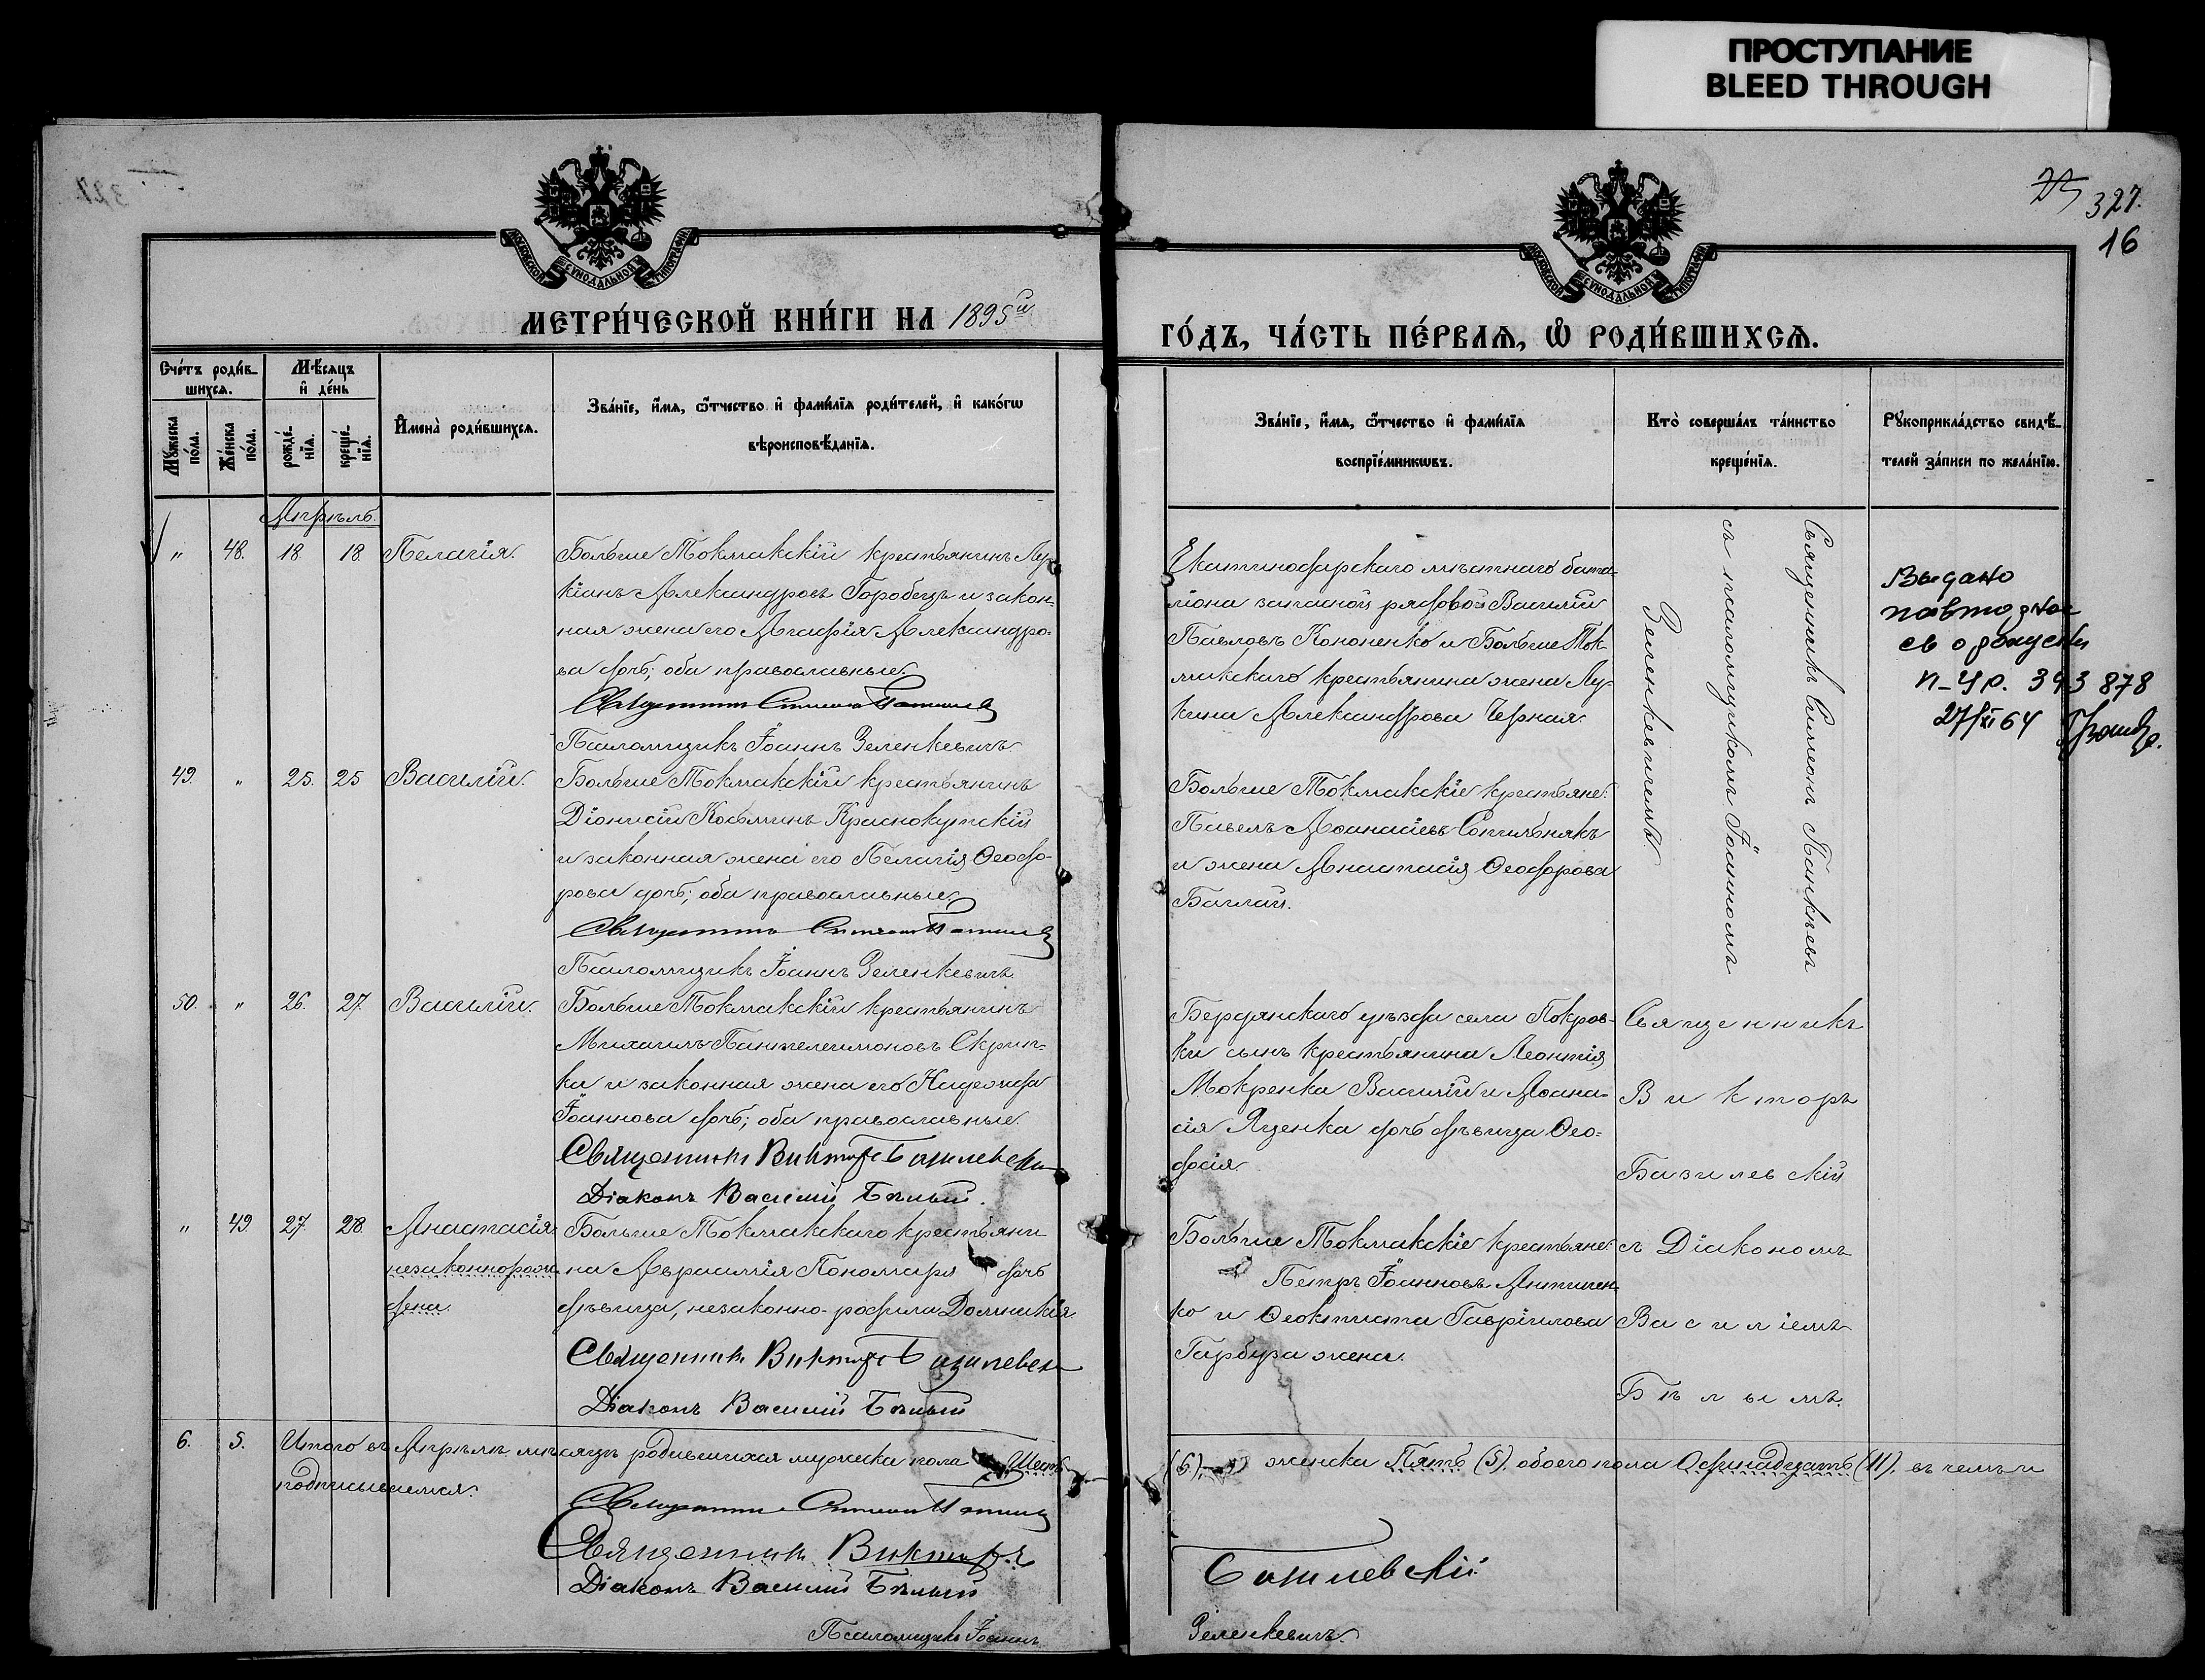 ПРОСТУПАНИЕ
BLEED THROUGH
327.
16
МОСКОВСКОЙ СѴНОДАЛЬНОЙ ТИПОГРАФІИ
МОСКОВСКОЙ СѴНОДАЛЬНОЙ ТИПОГРАФІИ
МЕТРИ́ЧЕСКОЙ КНИ́ГИ НА 1895й
ГО́ДЪ, ЧА́СТЬ ПЕ́РВАѦ, Ѡ҆ РОДИ́ВШИХСѦ.
Сче́тъ роди́в-
шихсѧ.
Мѣ́сѧцъ
и҆ де́нь
Мꙋ́жеска
по́ла.
Же́нска
по́ла.
рожде́-
нїѧ.
креще́-
нїѧ.
И҆мена̀ роди́вшихсѧ.
Зва́нїе, и҆́мѧ, ѻ҆́тчество и҆ фами́лїѧ роди́телей, и҆ како́гѡ
вѣроисповѣ́данїѧ.
Зва́нїе, и҆́мѧ, ѻ҆́тчество и҆ фами́лїѧ
воспрїе́мникѡвъ.
Кто̀ соверша́лъ та́инство
креще́нїѧ.
Рꙋкоприкла́дство свидѣ́-
телей за́писи по жела́нїю.
Апрѣль.
" 48. 18. 18. Пелагія.
Больше Токмакскій крестьянинъ Лу-
кіанъ Александровъ Горобецъ и закон-
ная жена его Агафія Александро-
ва дочь; оба православные.
Псаломщикъ Іоаннъ Зеленкевичъ
Екатинодарскаго мѣстнаго бата-
ліона запасной рядовой Василій
Павловъ Кононенко и Больше Ток-
макскаго крестьянина жена Лу-
кина Александрова Черная.
Священникъ Симеонъ Панкѣевъ
съ псаломщикомъ Іоанномъ
Зеленкевичемъ
Выдано
повторное
св о рождении
II-ЧР. 393878
27/XI 64
49. " 25. 25 Василій.
Больше Токмакскій крестьянинъ
Діонисій Косьминъ Краснокутскій
и законная жена его Пелагія Ѳеодо-
рова дочь; оба православные.
Псаломщикъ Іоаннъ Зеленкевичъ.
Больше Токмакскіе крестьяне:
Павелъ Аѳанасіевъ Сопильнякъ
и жена Анастасія Ѳеодорова
Баглай.
50. " 26. 27. Василій.
Больше Токмакскій крестьянинъ
Михаилъ Пантелеимоновъ Скрип-
ка и законная жена его Надежда
Іоаннова дочь; оба православные.
Священникъ Викторъ Базилевскій
Діаконъ Василій Бѣлый.
Бердянскаго уѣзда села Покров-
ки сынъ крестьянина Леонтія
Мокренка Василій и Аѳана-
сія Яценка дочь дѣвица Ѳео-
досія.
Священникъ
Викторъ
Базилевскій
съ Діакономъ
Василіемъ
Бѣлымъ.
" 49 27. 28. Анастасія
незаконнорож-
дена.
Больше Токмакскаго крестьяни
на Авраамія Пономаря дочь
дѣвица, незаконно-родила Домникія.
Священникъ Викторъ Базилевскій
Діаконъ Василій Бѣлый
Больше Токмакскіе крестьяне:
Петръ Іоанновъ Антипен-
ко и Ѳеоктиста Гавріилова
Гарбуза жена.
6. 5. Итого въ Апрѣлѣ мѣсяцѣ родившихся мужеска пола Шесть
(6), женска Пять (5), обоего пола Одинадцать (11), въ чемъ и
подписываемся:
Священникъ Викторъ
Базилевскій
Діаконъ Василій Бѣлый
Псаломщикъ Іоаннъ
Зеленкевичъ.